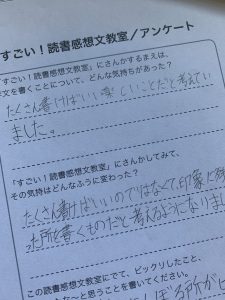 すごい！読書感想文教室／アンケート
「すごい！読書感想文教室」にさんかするまえは、
文を書くことについて、どんな気持ちがあった？
たくさん書けばいい楽しいことだと考えてい
ました。
「すごい！読書感想文教室」にさんかしてみて、
その気持はどんなふうに変わった？
たくさん書けばいいのではなくて、印象に残
った所を書くものだと考えるようになりまし
この読書感想文教室にでて、びっくりしたこと、
と思うことを書いてください。